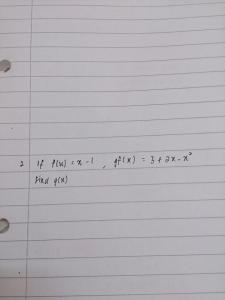 2 If f(x) = x - 1 , gf(x) = 3 + 2x - x²
find g(x)